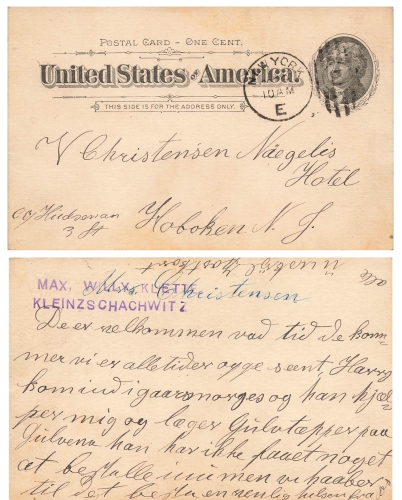 POSTAL CARD – ONE CENT.
United States of America.
THIS SIDE IS FOR THE ADDRESS ONLY.
NEW YORK
10 AM
E
V Christensen Naegelis
Hotel
Hudson
3 St
Hoboken N. J.
MAX WILLY KLETT
KLEINZSCHACHWITZ
Mrs. Christensen
De er velkommen vad tid de kom=
mer vi er alletider oppe sent, Harry
kom ind igaars morges og han hjæl=
per mig og læger Gulvtæpper paa
Gulvene han har ikke faaet noget
at bestille inu men vi haaber
til det beste en venlig hilsen fra